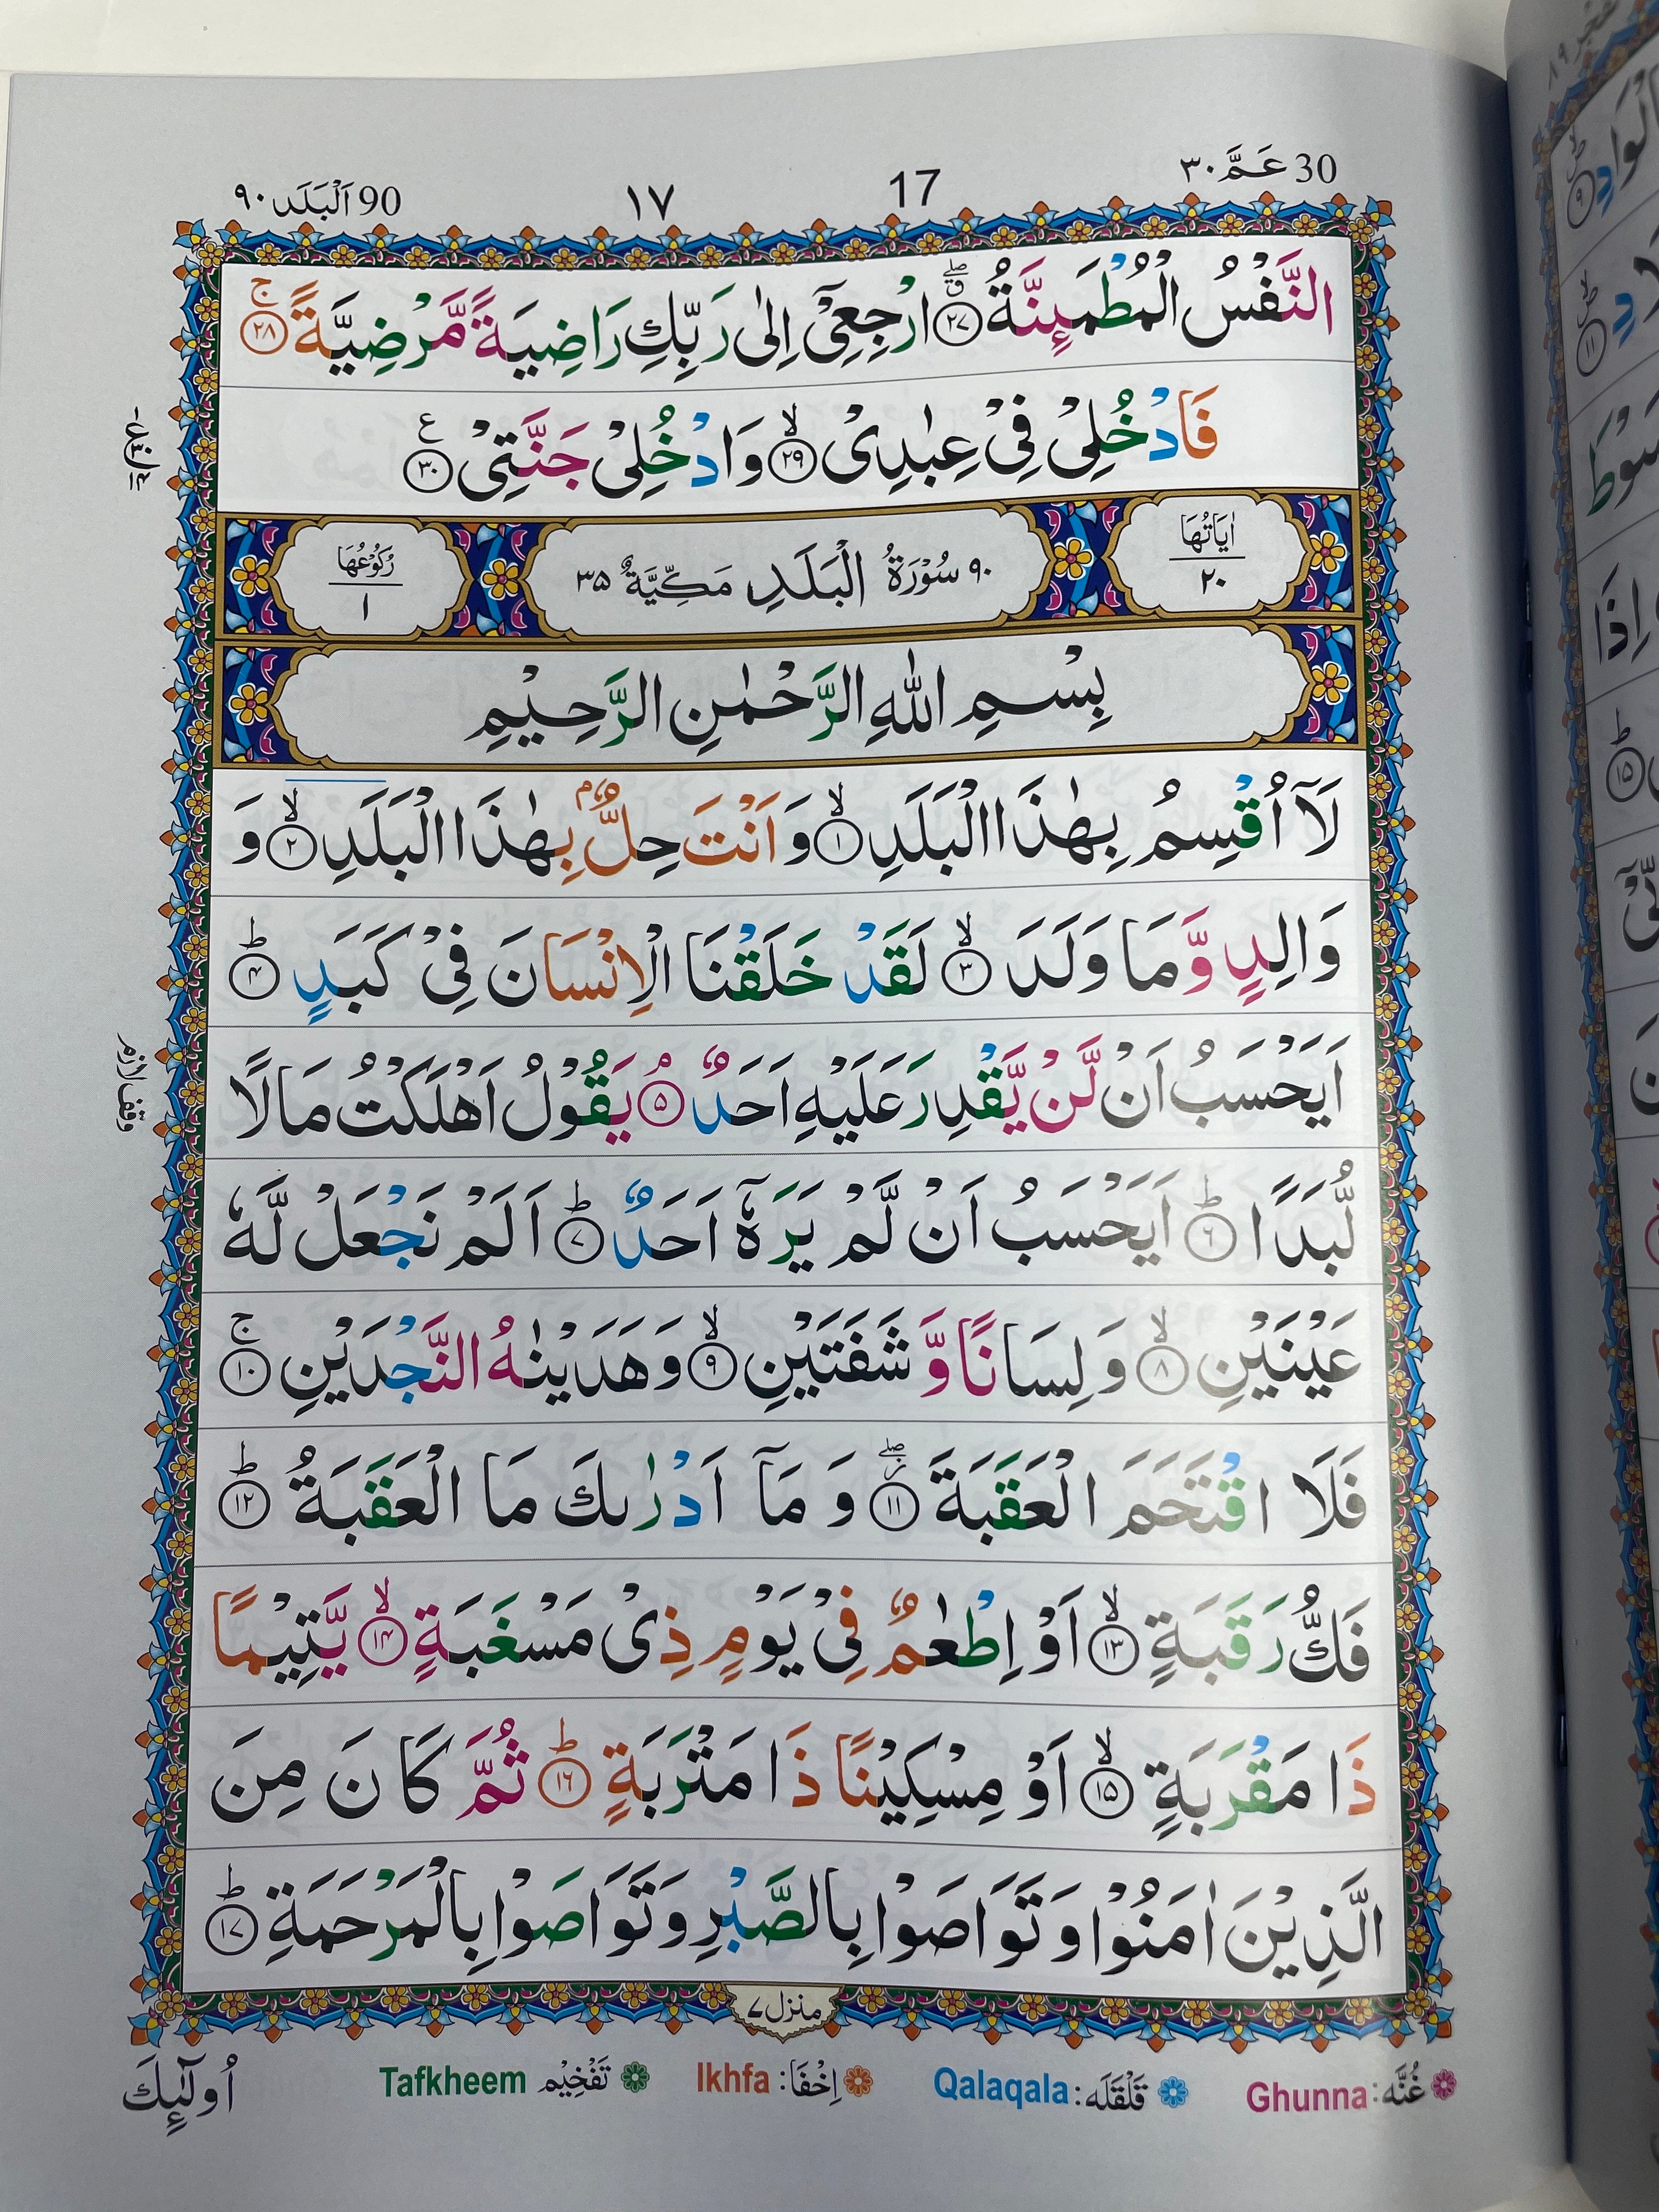 30 عَمَّ ٣٠ 17 ١٧ 90 اَلْبَلَد ٩٠
النَّفْسُ الْمُطْمَىِٕنَّةُ ۝٢٧ ارْجِعِیْۤ اِلٰی رَبِّكِ رَاضِیَةً مَّرْضِیَّةً ۝٢٨ ج
فَادْخُلِیْ فِیْ عِبٰدِیْ ۝٢٩ لا وَادْخُلِیْ جَنَّتِیْ ۝٣٠ ع
اٰيَاتُهَا ٢٠ ٩٠ سُوْرَةُ الْبَلَدِ مَكِّيَّةٌ ٣٥ رُكُوْعُهَا ١
بِسْمِ اللهِ الرَّحْمٰنِ الرَّحِیْمِ
لَاۤ اُقْسِمُ بِهٰذَا الْبَلَدِ ۝١ لا وَ اَنْتَ حِلٌّۢ بِهٰذَا الْبَلَدِ ۝٢ لا وَ
وَالِدٍ وَّ مَا وَلَدَ ۝٣ لا لَقَدْ خَلَقْنَا الْاِنْسَانَ فِیْ كَبَدٍ ۝٤ ط
اَیَحْسَبُ اَنْ لَّنْ یَّقْدِرَ عَلَیْهِ اَحَدٌ ۝٥ م یَقُوْلُ اَهْلَكْتُ مَالًا
وقف لازم
لُّبَدًا ۝٦ ط اَیَحْسَبُ اَنْ لَّمْ یَرَهٗۤ اَحَدٌ ۝٧ ط اَلَمْ نَجْعَلْ لَّهٗ
عَیْنَیْنِ ۝٨ لا وَ لِسَانًا وَّ شَفَتَیْنِ ۝٩ لا وَ هَدَیْنٰهُ النَّجْدَیْنِ ۝١٠ ج
فَلَا اقْتَحَمَ الْعَقَبَةَ ۝١١ وَ مَاۤ اَدْرٰىكَ مَا الْعَقَبَةُ ۝١٢ ط
فَكُّ رَقَبَةٍ ۝١٣ لا اَوْ اِطْعٰمٌ فِیْ یَوْمٍ ذِیْ مَسْغَبَةٍ ۝١٤ لا یَّتِیْمًا
ذَا مَقْرَبَةٍ ۝١٥ لا اَوْ مِسْكِیْنًا ذَا مَتْرَبَةٍ ۝١٦ ط ثُمَّ كَانَ مِنَ
الَّذِیْنَ اٰمَنُوْا وَ تَوَاصَوْا بِالصَّبْرِ وَ تَوَاصَوْا بِالْمَرْحَمَةِ ۝١٧ ط
منزل ٧
غُنَّه: Ghunna قَلْقَلَه: Qalaqala اِخْفَا: Ikhfa تَفْخِيْم Tafkheem
اُولٰٓىِٕكَ